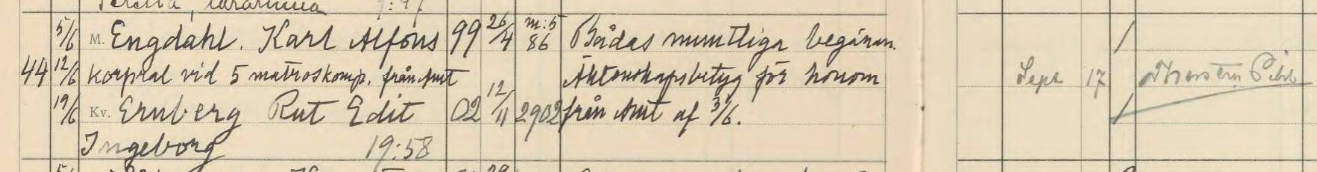 5/6 M. Engdahl. Karl Alfons 99 26/4 m:5 86 Bådas muntliga begäran.
44 12/6 korpral vid 5 matroskomp. från Amt Äktenskapsbetyg för honom Sept 17
19/6 Kv. Ernberg Rut Edit 02 12/11 2902 från Amt af 3/6.
Ingeborg 19:58